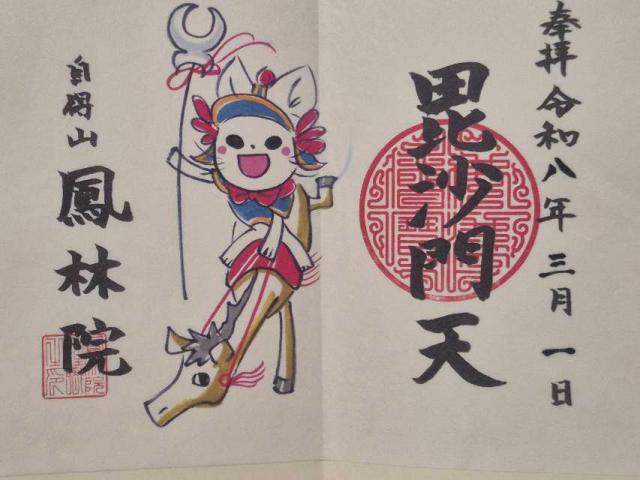 奉拝 令和八年 三月 一日
毘沙門天
自得山
鳳林院